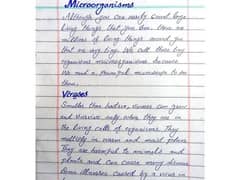 Microorganisms
Although you can easily count large
living things that you see. there are
millions of living things around you
that are very tiny. We call these tiny
organisms microorganisms because
We need a microscope to see
them.
Viruses
Smaller than bacteria, viruses can grow
and survive only when they are in
the living cells of organisms. They
multiply in warm and moist places
They are harmful to animals and
plants and can cause many disease
Some illnesses caused by a virus in